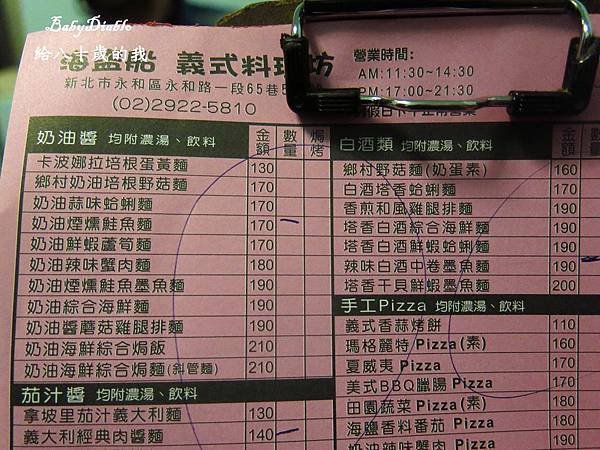 BabyDiablo
給八十歲的我
義式料理坊
新北市永和區永和路一段65巷
(02)2922-5810
營業時間:
AM:11:30~14:30
PM:17:00~21:30
奶油醬 均附濃湯、飲料 金額 數量 焗烤
卡波娜拉培根蛋黃麵 130
鄉村奶油培根野菇麵 170
奶油蒜味蛤蜊麵 170
奶油煙燻鮭魚麵 170
奶油鮮蝦蘆筍麵 170
奶油辣味蟹肉麵 180
奶油煙燻鮭魚墨魚麵 190
奶油綜合海鮮麵 190
奶油醬蘑菇雞腿排麵 190
奶油海鮮綜合焗飯 210
奶油海鮮綜合焗麵(斜管麵) 210
茄汁醬 均附濃湯、飲料
拿坡里茄汁義大利麵 130
義大利經典肉醬麵 140
白酒類 均附濃湯、飲料 金額 數量
鄉村野菇麵(奶蛋素) 160
白酒塔香蛤蜊麵 170
香煎和風雞腿排麵 190
塔香白酒綜合海鮮麵 190
塔香白酒鮮蝦蛤蜊麵 190
辣味白酒中卷墨魚麵 190
塔香干貝鮮蝦墨魚麵 200
手工Pizza 均附濃湯、飲料
義式香蒜烤餅 110
瑪格麗特Pizza(素) 160
夏威夷 Pizza 170
美式BBQ臘腸Pizza 170
田園蔬菜Pizza(素) 180
海鹽香料番茄 Pizza 180
奶油辣味蟹肉 Pizza 190